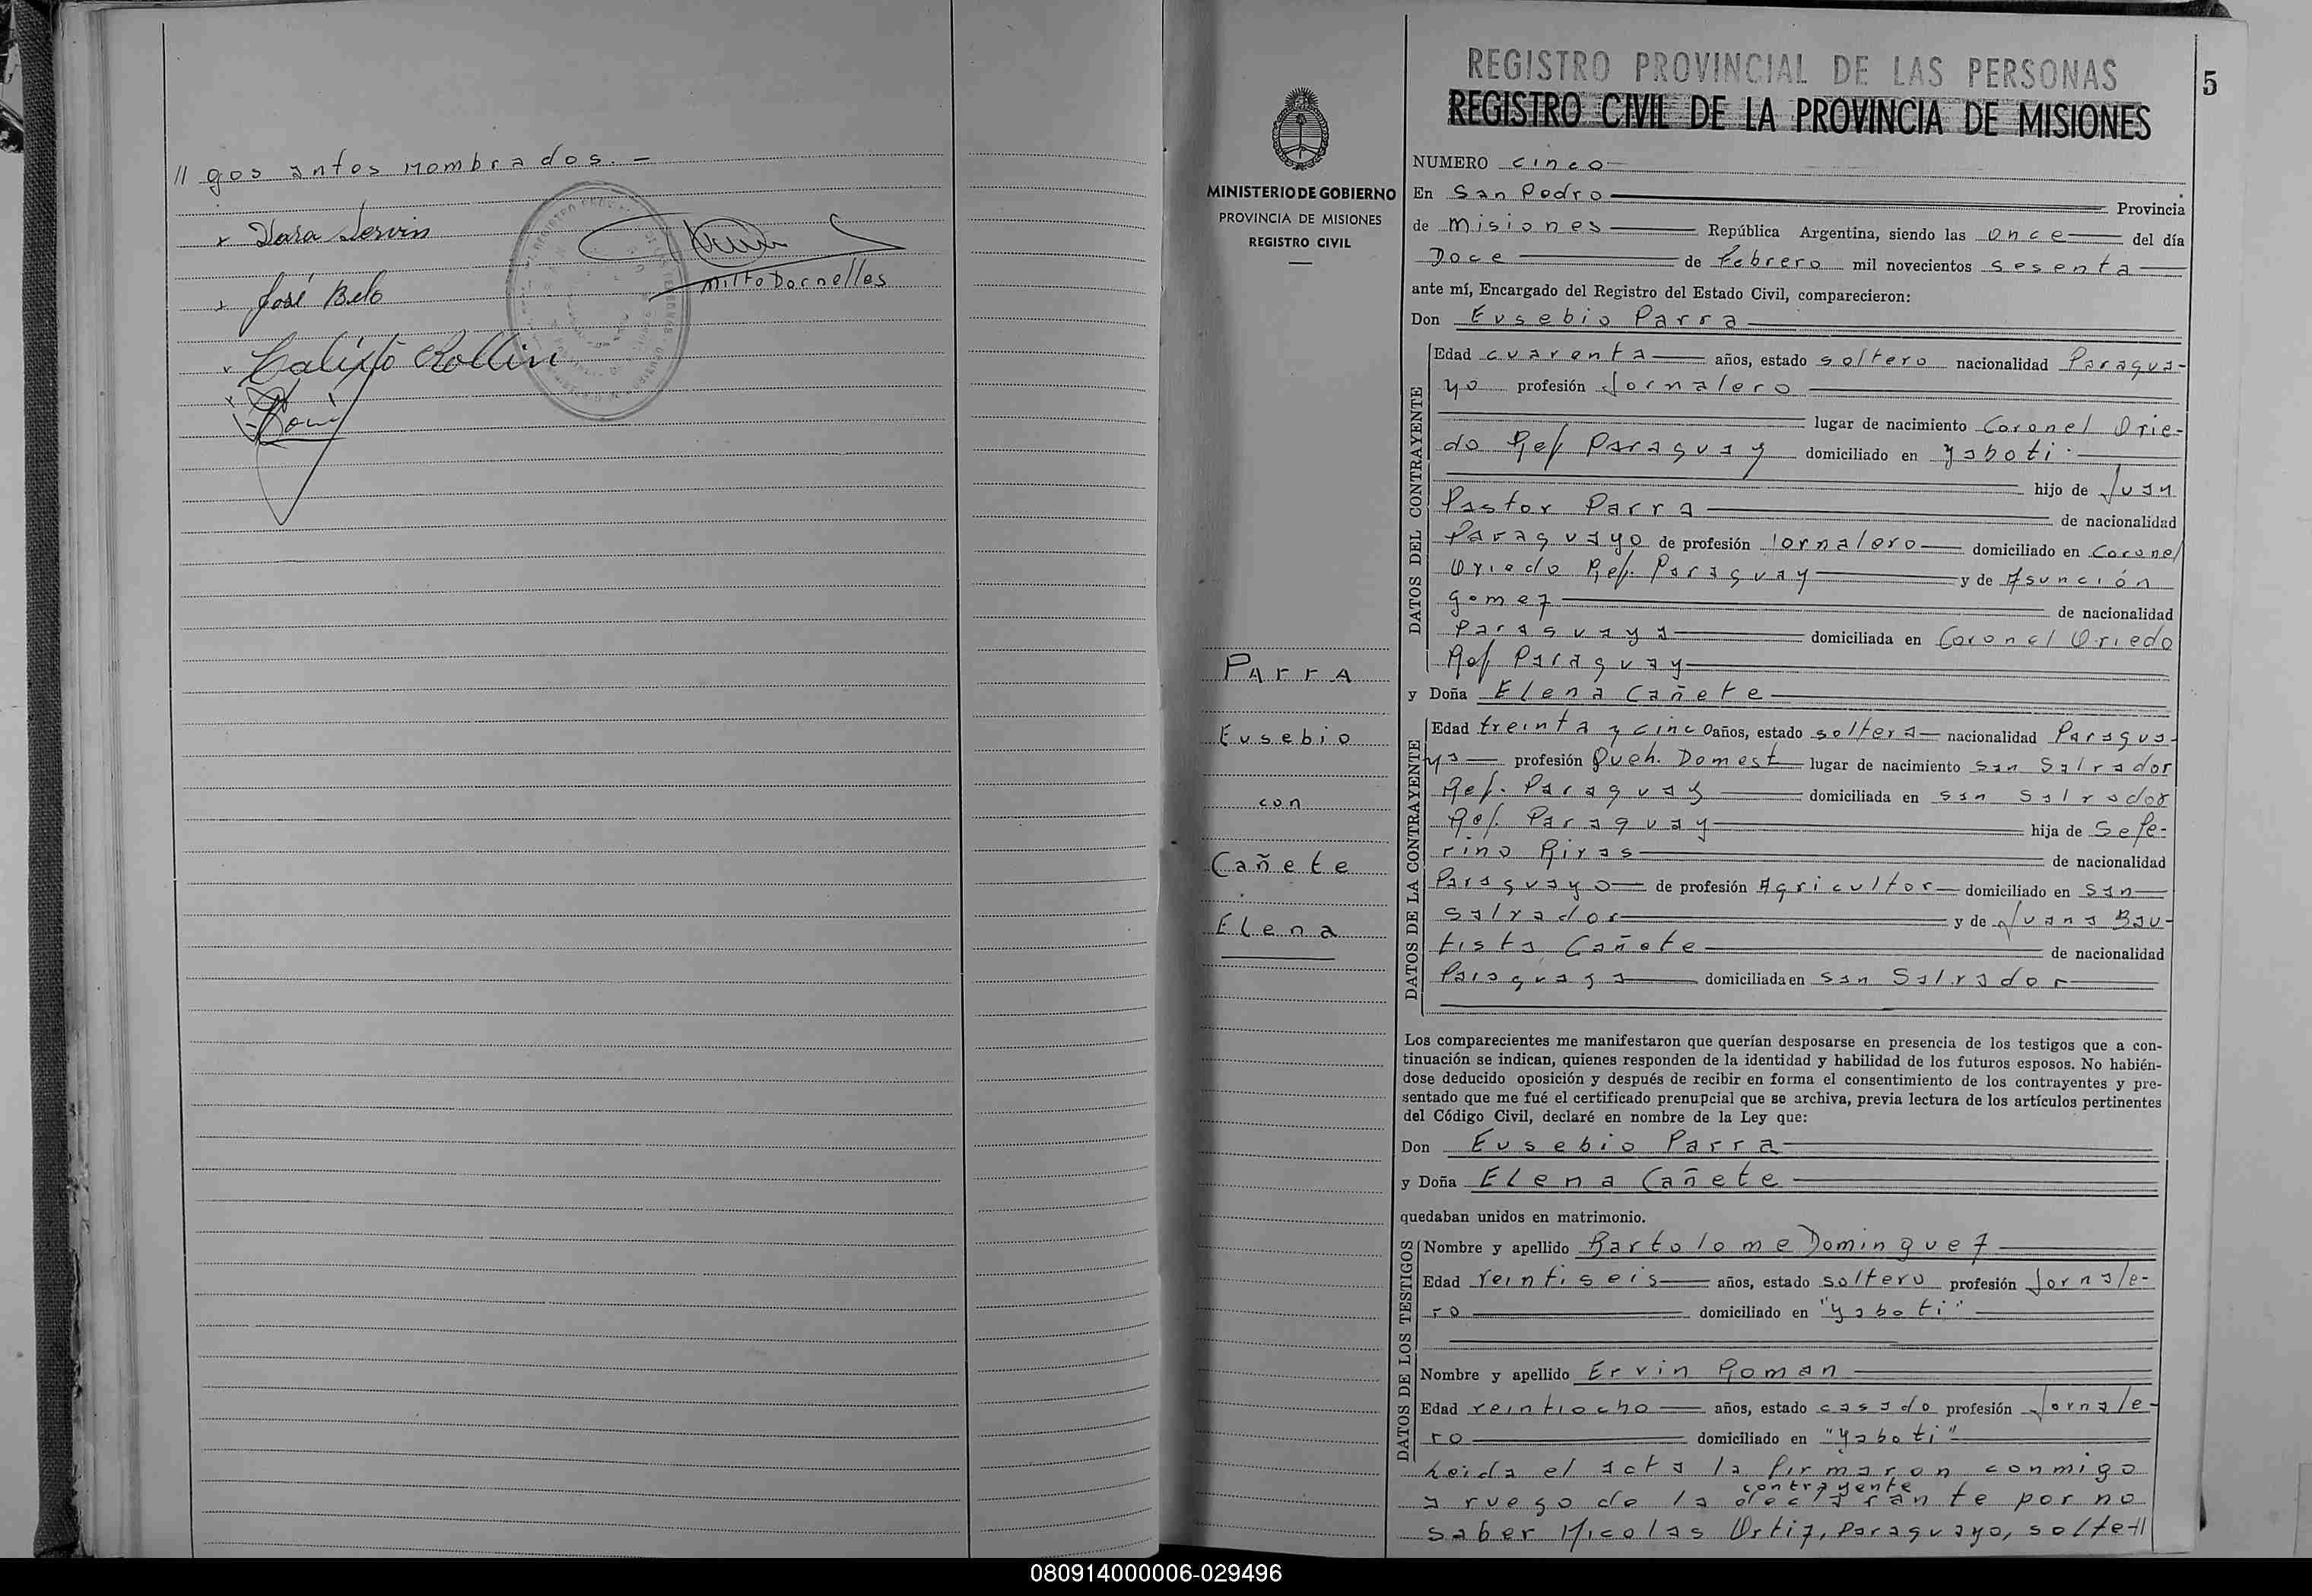 // gos antes nombrados. -
José Belo
Milto Dornelles
Calixto Rollin
5
REGISTRO PROVINCIAL DE LAS PERSONAS
REGISTRO CIVIL DE LA PROVINCIA DE MISIONES
MINISTERIO DE GOBIERNO
PROVINCIA DE MISIONES
REGISTRO CIVIL
Parra
Eusebio
con
Cañete
Elena
NUMERO cinco
En San Pedro Provincia
de Misiones República Argentina, siendo las once del día
Doce de febrero mil novecientos sesenta
ante mí, Encargado del Registro del Estado Civil, comparecieron:
Don Eusebio Parra
DATOS DEL CONTRAYENTE
Edad cuarenta años, estado soltero nacionalidad Paragua-
yo profesión Jornalero
lugar de nacimiento Coronel Ovie-
do Rep Paraguay domiciliado en Yaboti
hijo de Juan
Pastor Parra de nacionalidad
Paraguayo de profesión Jornalero domiciliado en Coronel
Oviedo Rep. Paraguay y de Asunción
gomez de nacionalidad
Paraguaya domiciliada en Coronel Oviedo
Rep Paraguay
y Doña Elena Cañete
DATOS DE LA CONTRAYENTE
Edad treinta y cinco años, estado soltera nacionalidad Paragua-
ya profesión Queh. Domest lugar de nacimiento San Salvador
Rep. Paraguay domiciliada en San Salvador
Rep. Paraguay hija de Sefe-
rino Rivas de nacionalidad
Paraguayo de profesión Agricultor domiciliado en San
Salvador y de Juana Bau-
tista Cañete de nacionalidad
Paraguaya domiciliada en San Salvador
Los comparecientes me manifestaron que querían desposarse en presencia de los testigos que a con-
tinuación se indican, quienes responden de la identidad y habilidad de los futuros esposos. No habién-
dose deducido oposición y después de recibir en forma el consentimiento de los contrayentes y pre-
sentado que me fué el certificado prenupcial que se archiva, previa lectura de los artículos pertinentes
del Código Civil, declaré en nombre de la Ley que:
Don Eusebio Parra
y Doña Elena Cañete
quedaban unidos en matrimonio.
DATOS DE LOS TESTIGOS
Nombre y apellido Bartolome Dominguez
Edad veintiseis años, estado soltero profesión Jornale-
ro domiciliado en "Yaboti"
Nombre y apellido Ervin Roman
Edad veintiocho años, estado casado profesión Jornale-
ro domiciliado en "Yaboti"
Leida el acta la firmaron conmigo
contrayente
a ruego de la declarante por no
saber Nicolas Ortiz, Paraguayo, solte-//
080914000006-029496